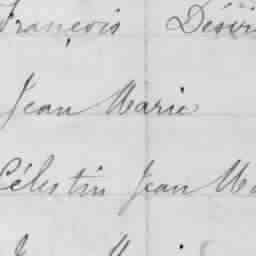 François Désiré
Jean Marie
Célestin Jean Ma